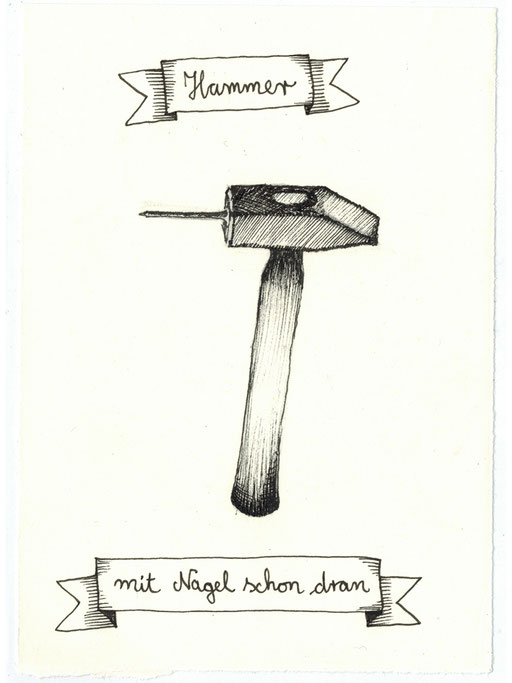 Hammer
mit Nagel schon dran